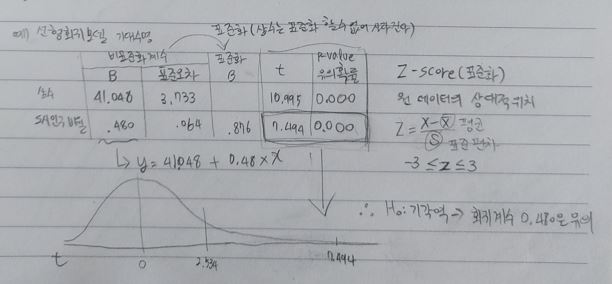 예) 선형회귀모델 기대수명
표준화 (상수는 표준화 할수 없어 사라진다)
비표준화계수 표준화 t P-value
B 표준오차 B 유의확률
상수 41.048 3.733 10.995 0.000
.480 .064 .876 7.494 0.000
↳ y = 41.048 + 0.48 × x
Z-score (표준화)
원 데이터의 상대적위치
Z = x - x̄ 평균
S 표준편차
-3 ≤ z ≤ 3
∴ H₀: 기각역 → 회귀계수 0.480은 유의
t 0 2.534 7.494